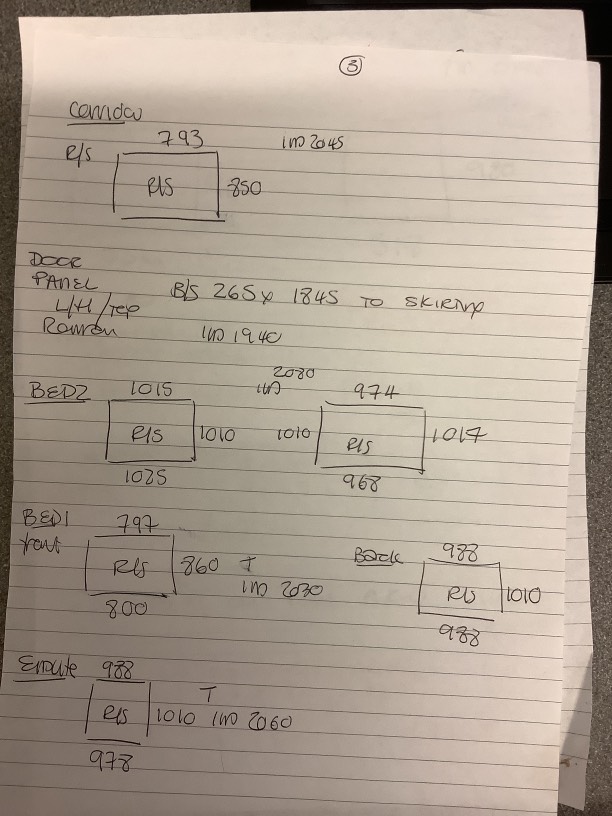 3
Corridor
R/S 793 1m 2045
R/S 850
DOOR
PANEL B/S 265 x 1845 TO SKIRTING
L/H/Top
1m 1940
BED2 1015 1m 2080 974
R/S 1010 1010 R/S 1017
1025 968
BED1 797 Back 988
front R/S 860 T R/S 1010
1m 2030
800 988
Ensuite 988
R/S 1010 T 1m 2060
978